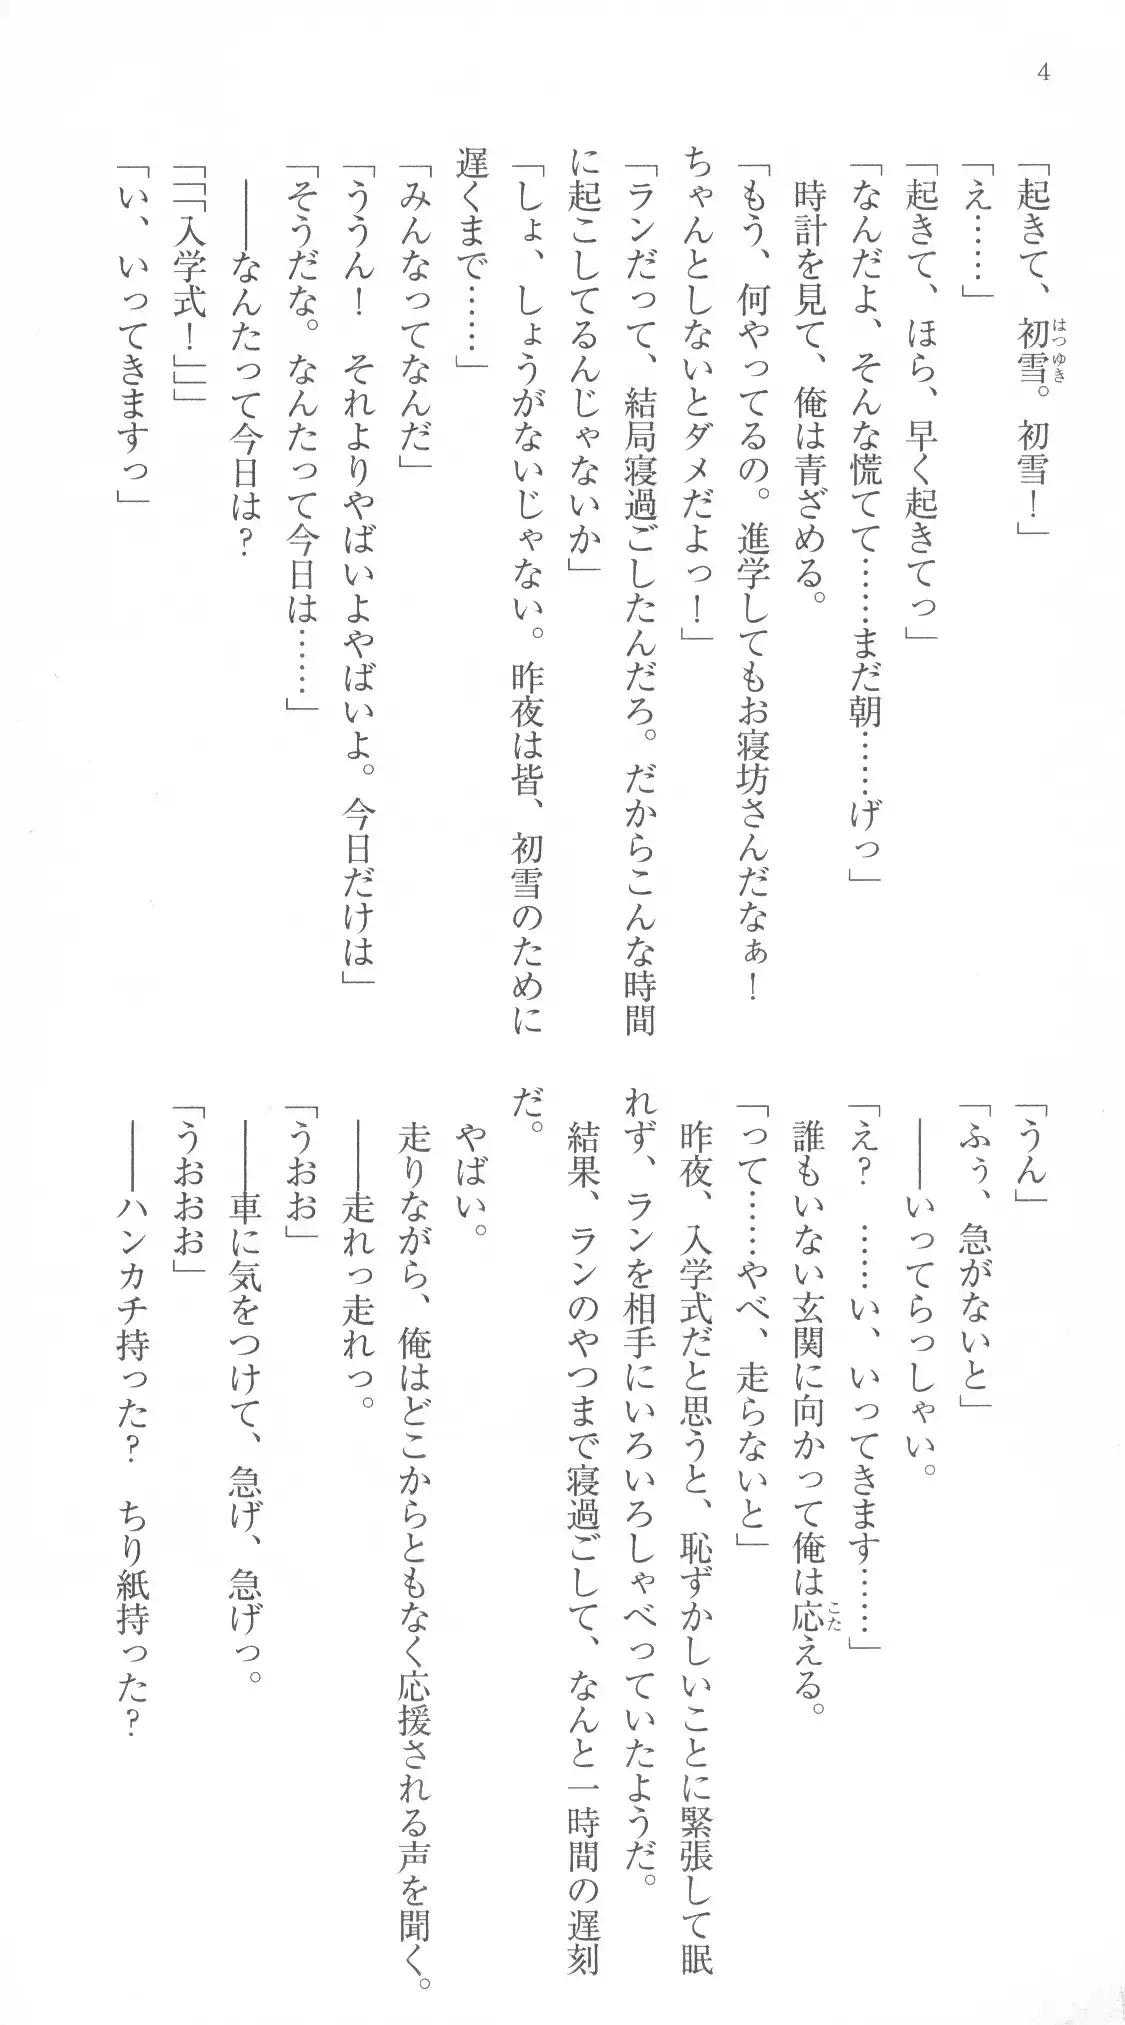 4
「起きて、初雪。初雪！」
「え……」
「起きて、ほら、早く起きてっ」
「なんだよ、そんな慌てて……まだ朝……げっ」
　時計を見て、俺は青ざめる。
「もう、何やってるの。進学してもお寝坊さんだなぁ！
ちゃんとしないとダメだよっ！」
「ランだって、結局寝過ごしたんだろ。だからこんな時間
に起こしてるんじゃないか」
「しょ、しょうがないじゃない。昨夜は皆、初雪のために
遅くまで……」
「みんなってなんだ」
「ううん！　それよりやばいよやばいよ。今日だけは」
「そうだな。なんたって今日は……」
　――なんたって今日は？
「「「入学式！」」」
「い、いってきますっ」
「うん」
「ふぅ、急がないと」
　――いってらっしゃい。
「え？　……い、いってきます……」
　誰もいない玄関に向かって俺は応える。
「って……やべ、走らないと」
　昨夜、入学式だと思うと、恥ずかしいことに緊張して眠
れず、ランを相手にいろいろしゃべっていたようだ。
　結果、ランのやつまで寝過ごして、なんと一時間の遅刻
だ。
　やばい。
　走りながら、俺はどこからともなく応援される声を聞く。
　――走れっ走れっ。
「うおお」
　――車に気をつけて、急げ、急げっ。
「うおおお」
　――ハンカチ持った？　ちり紙持った？
はつゆき
こた